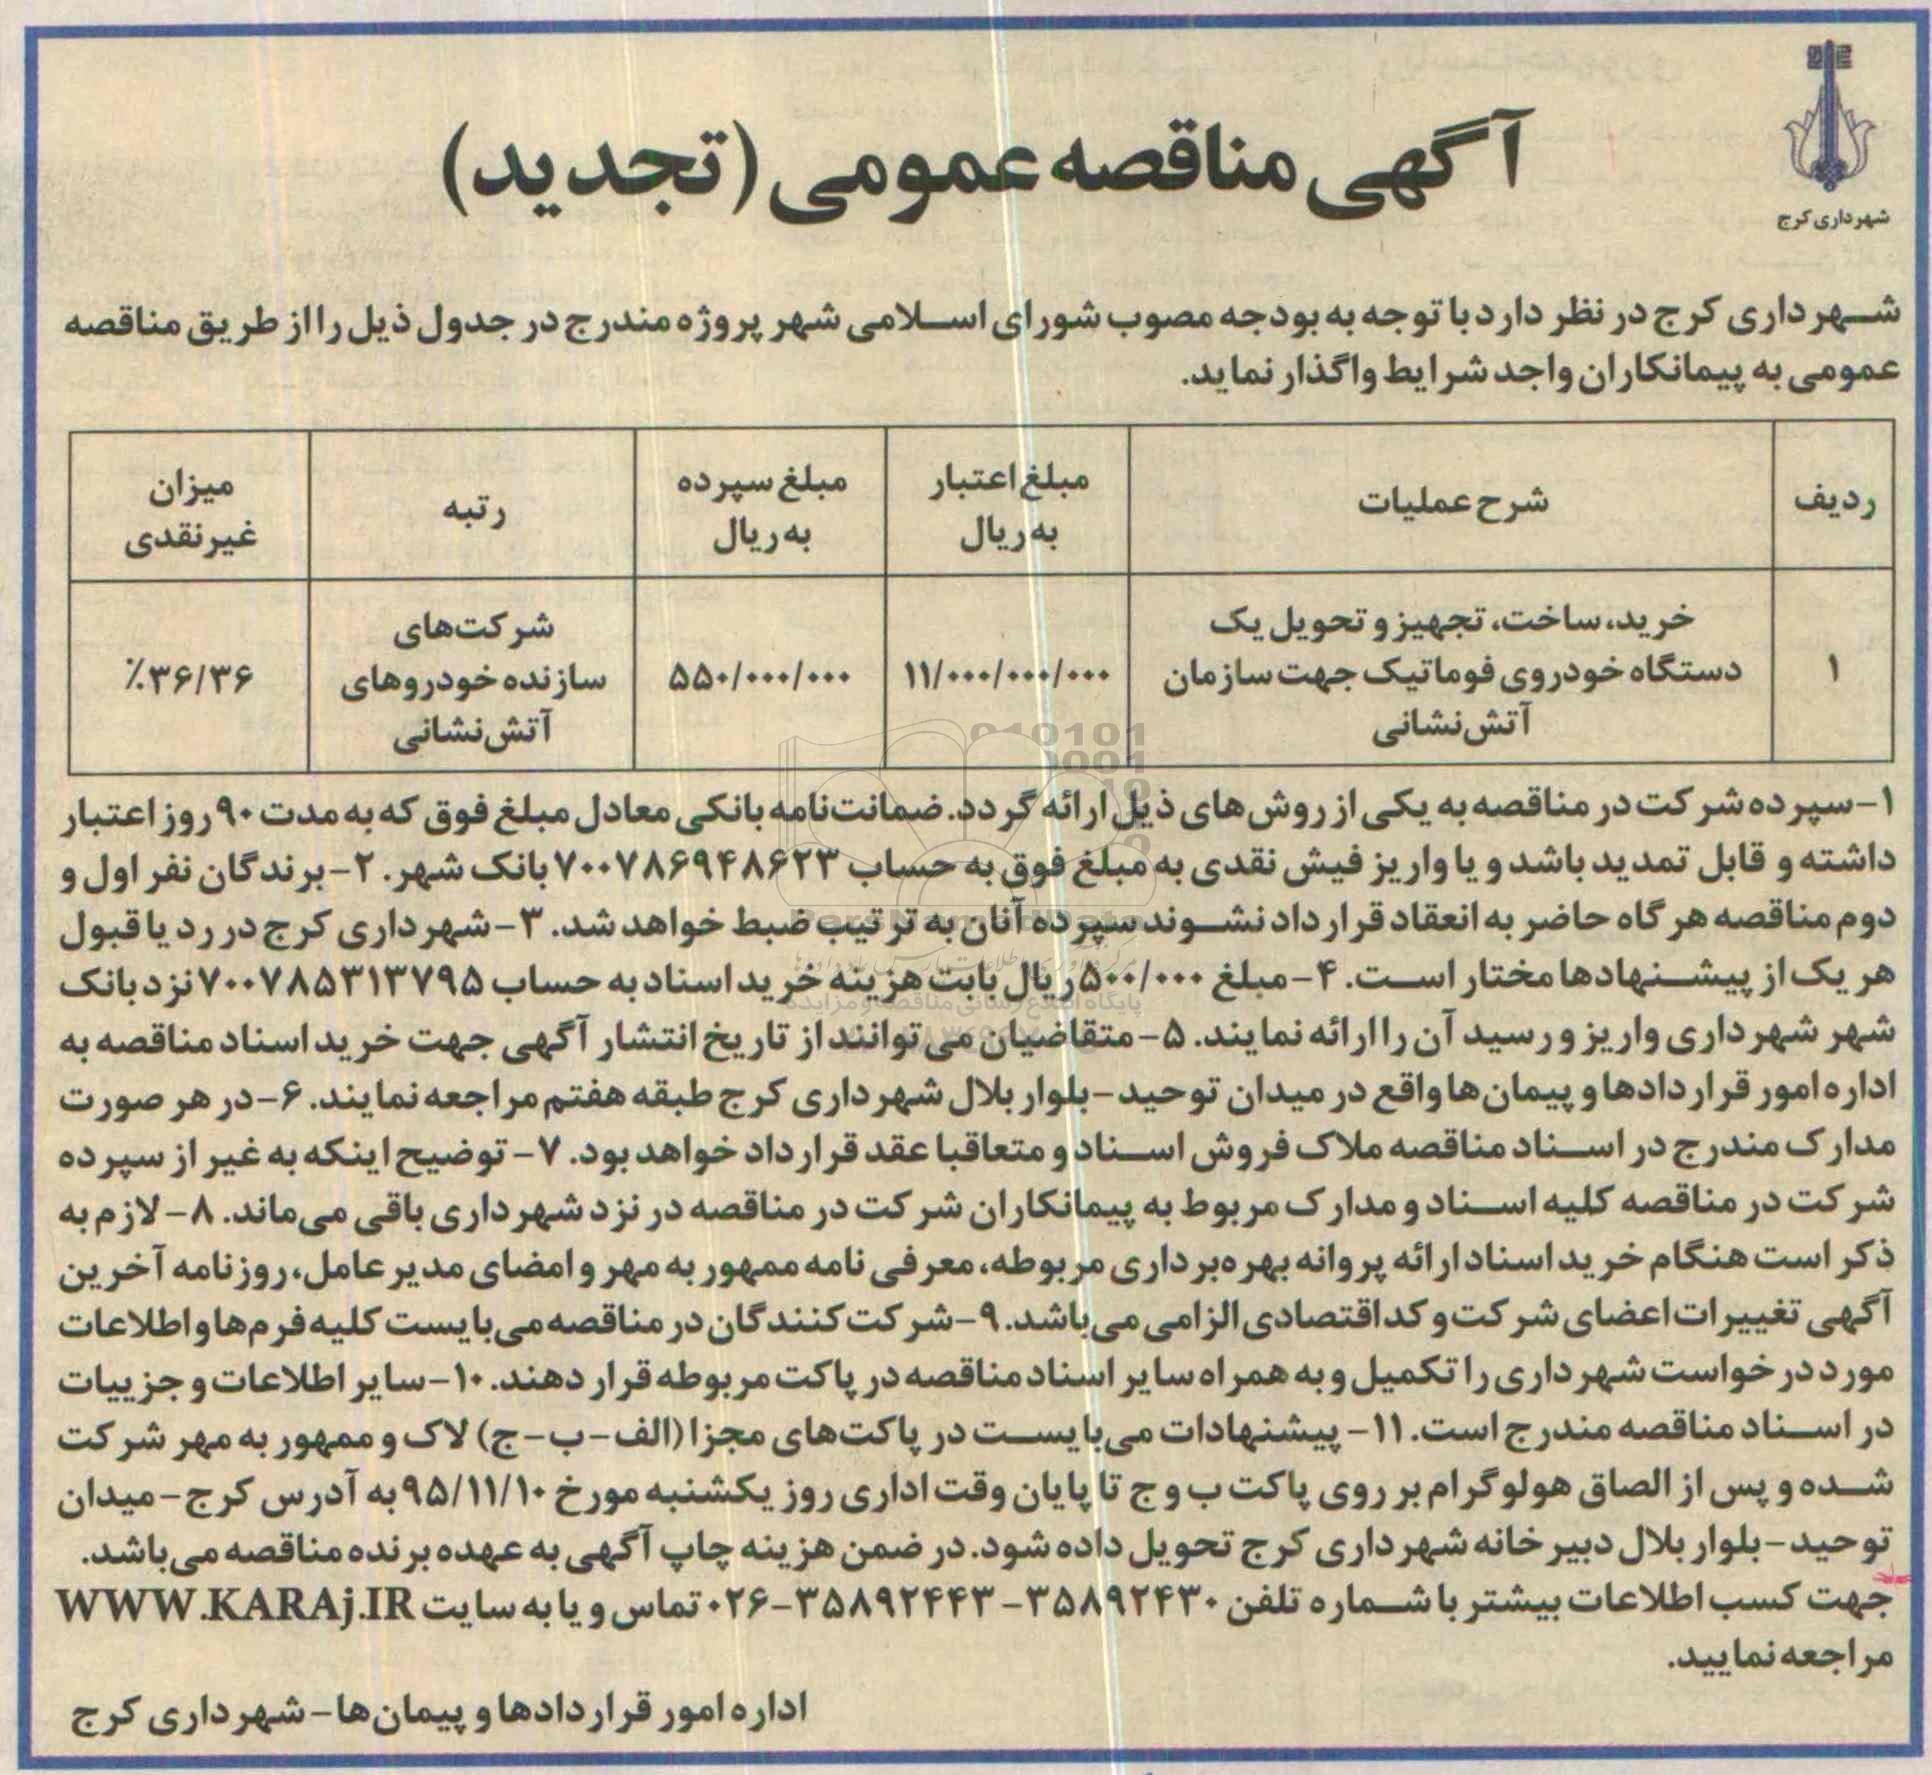 شهرداری کرج
آگهی مناقصه عمومی (تجدید)
شهرداری کرج در نظر دارد با توجه به بودجه مصوب شورای اسلامی شهر پروژه مندرج در جدول ذیل را از طریق مناقصه
عمومی به پیمانکاران واجد شرایط واگذار نماید.
ردیف
شرح عملیات
مبلغ اعتبار
به ریال
مبلغ سپرده
به ریال
رتبه
میزان
غیرنقدی
۱
خرید، ساخت، تجهیز و تحویل یک
دستگاه خودروی فوماتیک جهت سازمان
آتش‌نشانی
۱۱/۰۰۰/۰۰۰/۰۰۰
۵۵۰/۰۰۰/۰۰۰
شرکت‌های
سازنده خودروهای
آتش‌نشانی
۳۶/۳۶٪
۱- سپرده شرکت در مناقصه به یکی از روش‌های ذیل ارائه گردد. ضمانت‌نامه بانکی معادل مبلغ فوق که به مدت ۹۰ روز اعتبار
داشته و قابل تمدید باشد و یا واریز فیش نقدی به مبلغ فوق به حساب ۷۰۰۷۸۶۹۴۸۶۲۳ بانک شهر. ۲- برندگان نفر اول و
دوم مناقصه هرگاه حاضر به انعقاد قرارداد نشوند سپرده آنان به ترتیب ضبط خواهد شد. ۳- شهرداری کرج در رد یا قبول
هر یک از پیشنهادها مختار است. ۴- مبلغ ۵۰۰/۰۰۰ ریال بابت هزینه خرید اسناد به حساب ۷۰۰۷۸۵۳۱۳۷۹۵ نزد بانک
شهر شهرداری واریز و رسید آن را ارائه نمایند. ۵- متقاضیان می‌توانند از تاریخ انتشار آگهی جهت خرید اسناد مناقصه به
اداره امور قراردادها و پیمان‌ها واقع در میدان توحید – بلوار بلال شهرداری کرج طبقه هفتم مراجعه نمایند. ۶- در هر صورت
مدارک مندرج در اسناد مناقصه ملاک فروش اسناد و متعاقبا عقد قرارداد خواهد بود. ۷- توضیح اینکه به غیر از سپرده
شرکت در مناقصه کلیه اسناد و مدارک مربوط به پیمانکاران شرکت در مناقصه در نزد شهرداری باقی می‌ماند. ۸- لازم به
ذکر است هنگام خرید اسناد ارائه پروانه بهره‌برداری مربوطه، معرفی نامه ممهور به مهر و امضای مدیرعامل، روزنامه آخرین
آگهی تغییرات اعضای شرکت و کد اقتصادی الزامی می‌باشد. ۹- شرکت کنندگان در مناقصه می‌بایست کلیه فرم‌ها و اطلاعات
مورد درخواست شهرداری را تکمیل و به همراه سایر اسناد مناقصه در پاکت مربوطه قرار دهند. ۱۰- سایر اطلاعات و جزییات
در اسناد مناقصه مندرج است. ۱۱- پیشنهادات می‌بایست در پاکت‌های مجزا (الف- ب- ج) لاک و ممهور به مهر شرکت
شده و پس از الصاق هولوگرام بر روی پاکت ب و ج تا پایان وقت اداری روز یکشنبه مورخ ۹۵/۱۱/۱۰ به آدرس کرج – میدان
توحید – بلوار بلال دبیرخانه شهرداری کرج تحویل داده شود. در ضمن هزینه چاپ آگهی به عهده برنده مناقصه می‌باشد.
جهت کسب اطلاعات بیشتر با شماره تلفن ۳۵۸۹۲۴۳۰- ۳۵۸۹۲۴۴۳-۰۲۶ تماس و یا به سایت WWW.KARAj.IR
مراجعه نمایید.
اداره امور قراردادها و پیمان‌ها – شهرداری کرج